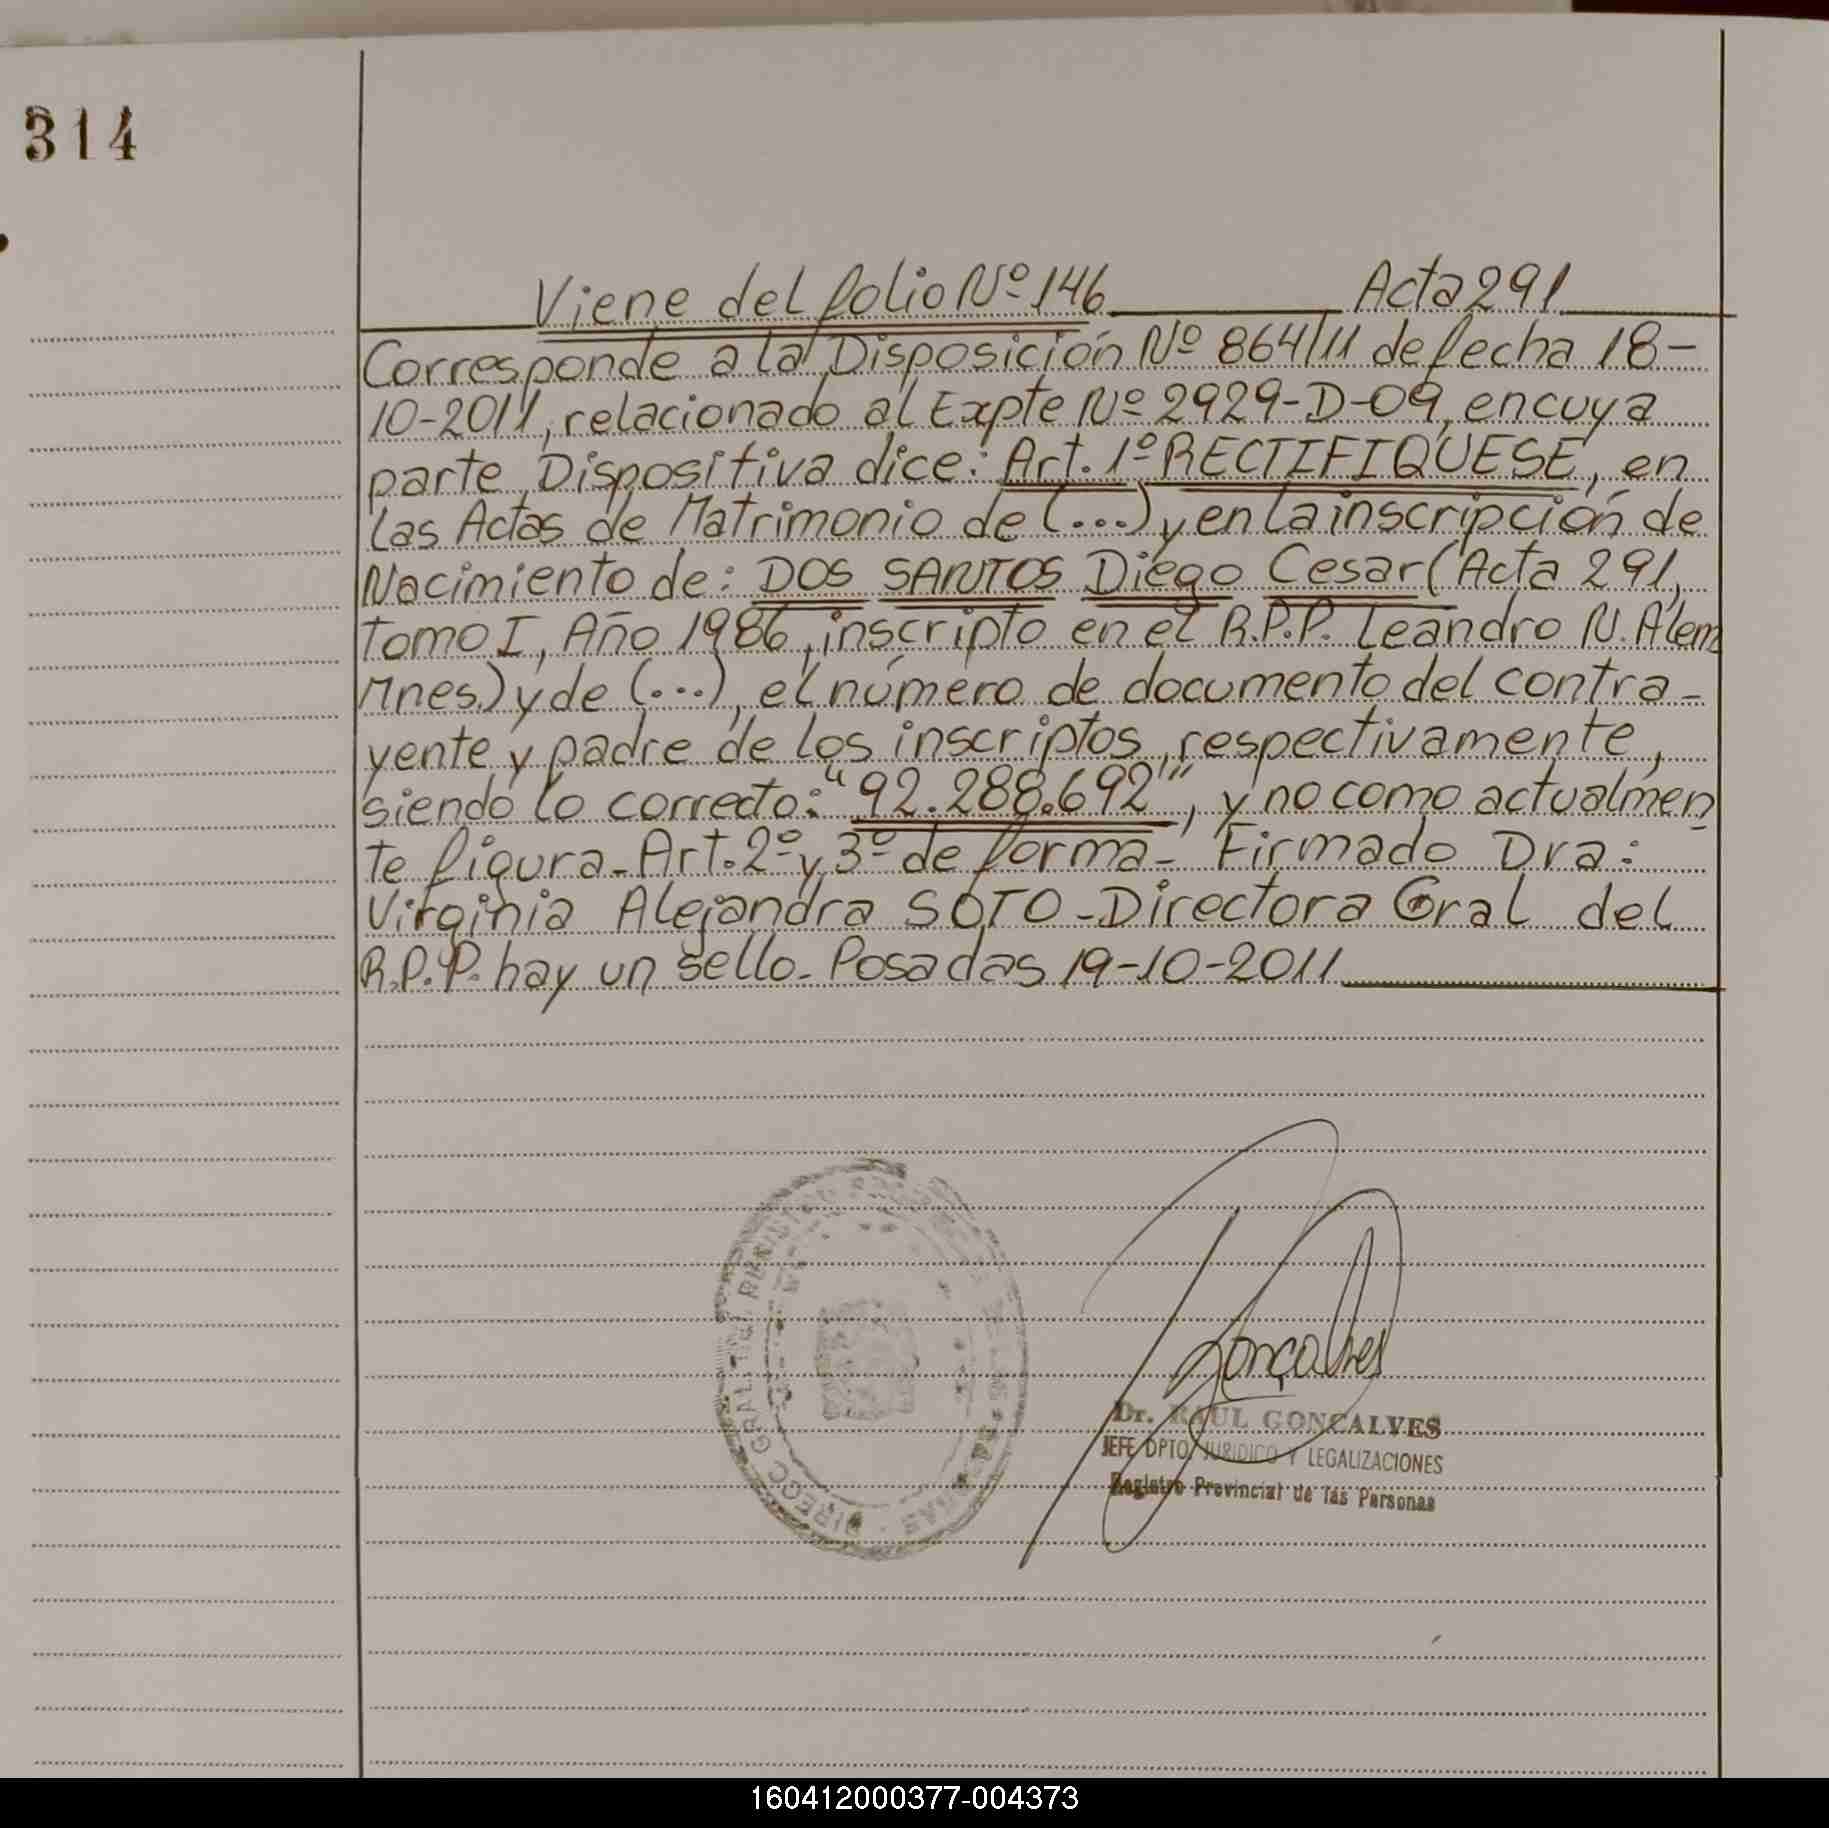 314
Viene del folio Nº 146 Acta 291
Corresponde a la Disposición Nº 864/11 de fecha 18-
10-2011, relacionado al Expte Nº 2929-D-09, en cuya
parte Dispositiva dice: Art. 1º RECTIFIQUESE, en
las Actas de Matrimonio de (...) y en la inscripción de
Nacimiento de: DOS SANTOS Diego Cesar (Acta 291,
Tomo I, Año 1986, inscripto en el R.P.P. Leandro N. Alem
Mnes.) y de (...), el número de documento del contra-
yente y padre de los inscriptos, respectivamente,
siendo lo correcto: "92.288.692", y no como actualmen
te figura - Art. 2º y 3º de forma - Firmado Dra:
Virginia Alejandra SOTO - Directora Gral del
R.P.P. hay un sello - Posadas 19-10-2011
DIRECC GRAL
Gonçalves
Dr. RAUL GONCALVES
JEFE DPTO. JURIDICO Y LEGALIZACIONES
Registro Provincial de las Personas
160412000377-004373